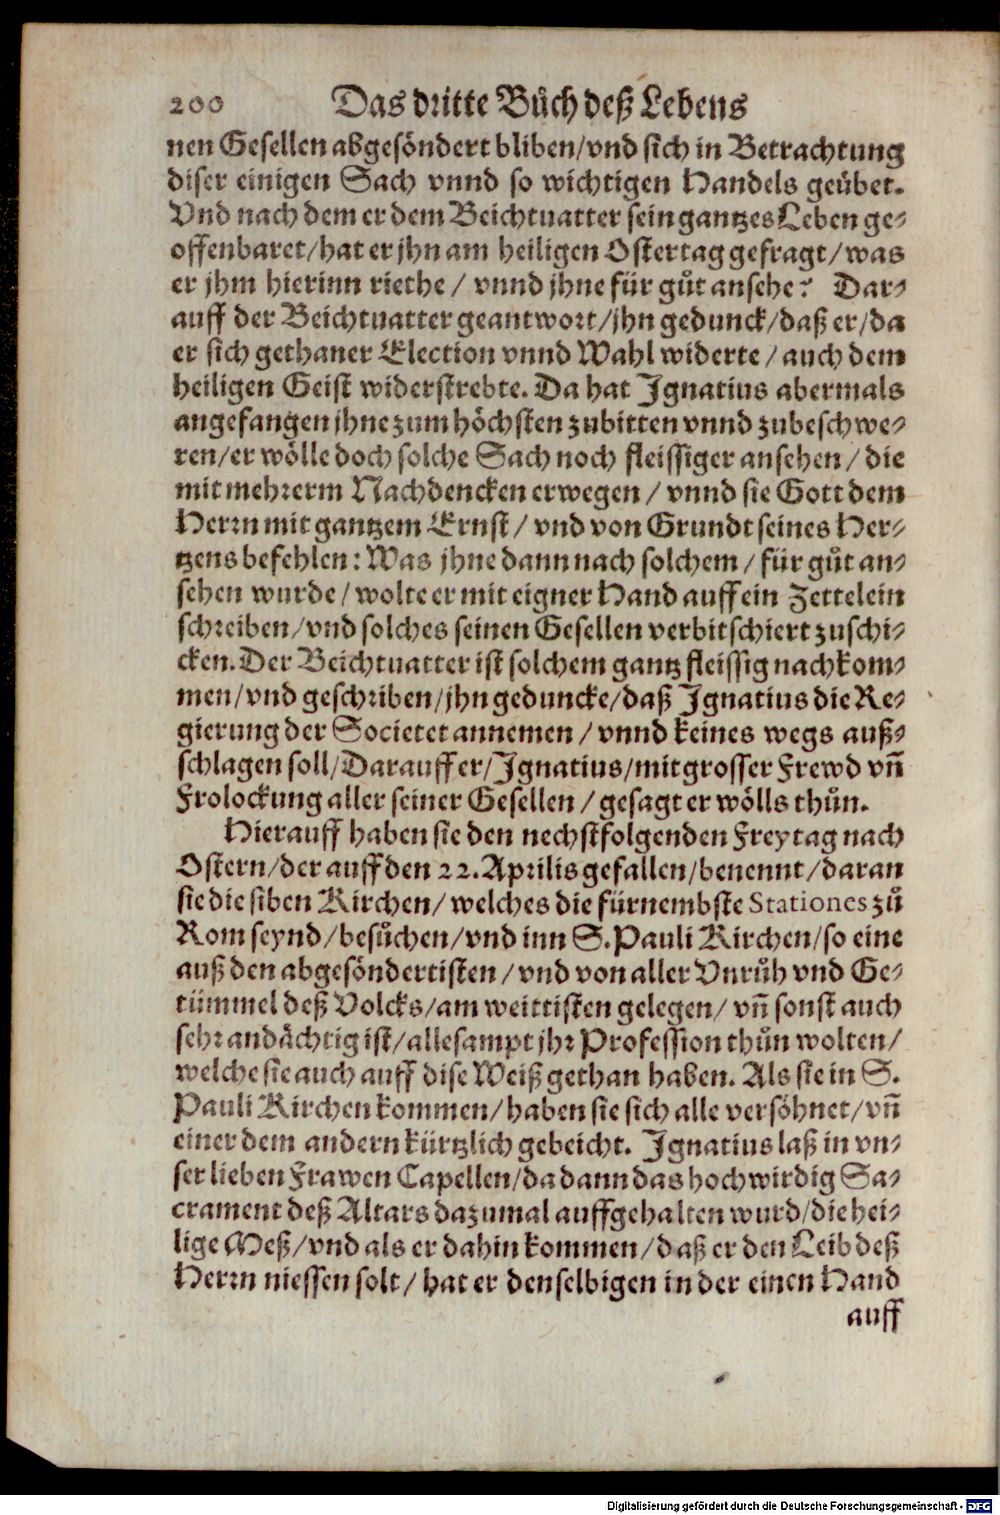 200 Das dritte Bůch deß Lebens
nen Gesellen abgesöndert bliben/vnd sich in Betrachtung
diser einigen Sach vnnd so wichtigen Handels geübet.
Vnd nach dem er dem Beichtuatter sein gantzes Leben ge-
offenbaret/hat er jhn am heiligen Ostertag gefragt/was
er jhm hierinn riethe/ vnnd jhne für gůt ansehe? Dar-
auff der Beichtuatter geantwort/jhn gedunck/daß er/da
er sich gethaner Election vnnd Wahl widerte/auch dem
heiligen Geist widerstrebte. Da hat Jgnatius abermals
angefangen jhne zum höchsten zubitten vnnd zubeschwe-
ren/er wölle doch solche Sach noch fleissiger ansehen/die
mit mehrerm Nachdencken erwegen/vnnd sie Gott dem
Herrn mit gantzem Ernst/ vnd von Grundt seines Her-
tzens befehlen: Was jhne dann nach solchem/für gůt an-
sehen wurde/wolte er mit eigner Hand auff ein Zettelein
schreiben/vnd solches seinen Gesellen verbitschiert zuschi-
cken. Der Beichtuatter ist solchem gantz fleissig nachkom-
men/vnd geschriben/jhn geduncke/daß Jgnatius die Re-
gierung der Societet annemen/vnnd keines wegs auß-
schlagen soll/Darauff er/Jgnatius/mit grosser Frewd vn̄
Frolockung aller seiner Gesellen/gesagt er wölls thůn.
Hierauff haben sie den nechstfolgenden Freytag nach
Ostern/der auff den 22. Aprilis gefallen/benennt/daran
sie die siben Kirchen/welches die fürnembste Stationes zů
Rom seynd/besůchen/vnd inn S. Pauli Kirchen/so eine
auß den abgesöndertisten/vnd von aller Vnrůh vnd Ge-
tümmel deß Volcks/am weittisten gelegen/ vn̄ sonst auch
sehr andächtig ist/allesampt jhr Profession thůn wolten/
welche sie auch auff dise Weiß gethan haben. Als sie in S.
Pauli Kirchen kommen/haben sie sich alle versöhnet/vn̄
einer dem andern kürtzlich gebeicht. Jgnatius laß in vn-
ser lieben Frawen Capellen/da dann das hochwirdig Sa-
crament deß Altars dazumal auffgehalten wurd/die hei-
lige Meß/vnd als er dahin kommen/daß er den Leib deß
Herrn niessen solt/hat er denselbigen in der einen Hand
auff
Digitalisierung gefördert durch die Deutsche Forschungsgemeinschaft - DFG